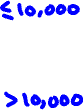 ≤10,000
>10,000